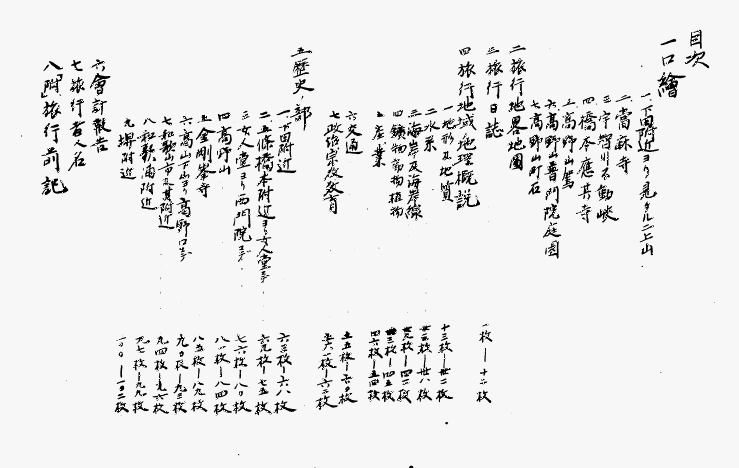 目次
一 口繪
一、下田附近ヨリ見タル二上山
二 當麻寺
三 宇智川不動峽
四 橋本應其寺
五 高野山鳥
六 高野山普門院庭園
七 高野山町石
二 旅行地畧地圖
三 旅行日誌 一枚—十二枚
四 旅行地域ノ地理概説
一 地形及地質 十三枚—廿二枚
二 水系 廿三枚—廿八枚
三 海岸及海岸線 廿九枚—四二枚
四 鑛物動物植物 四三枚—四五枚
五 産業 四六枚—五四枚
六 交通 五五枚—六〇枚
七 政治宗教教育 六一枚—六二枚
五 歷史ノ部
一、下田附近 六三枚—六八枚
二 五條橋本附近ヨリ女人堂マデ 六九枚—七五枚
三 女人堂ヨリ西門院マデ 七六枚—八〇枚
四 高野山 八一枚—八四枚
五 金剛峯寺 八五枚—八九枚
六 高野山ヨリ高野口マデ 九〇枚—九三枚
七 和歌山市及其附近 九四枚—九六枚
八 和歌浦附近 九七枚—九九枚
九 堺附近 一〇〇—一〇二枚
六 會計報告
七 旅行者人名
八「附」旅行前記